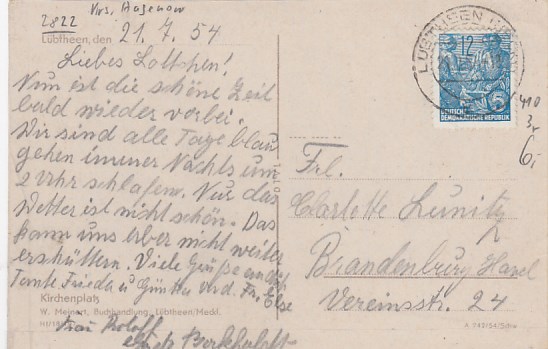 2822
Krs. Hagenow
Lübtheen, den 21. 7. 54
Liebes Lottchen!
Nun ist die schöne Zeit
bald wieder vorbei.
Wir sind alle Tage blau
gehen immer Nachts um
2 Uhr schlafen. Nur das
Wetter ist nicht schön. Das
kann uns aber nicht weiter
erschüttern. Viele Grüße an dich
Tante Frieda u Günther und Fr. Else
Kirchenplatz
W. Meinert, Buchhandlung, Lübtheen/Meckl.
Frau
LÜBTHEEN
12
5
DEUTSCHE
DEMOKRATISCHE REPUBLIK
410
6,-
Frl.
Charlotte Lunitz
Brandenburg/Havel
Vereinsstr. 24